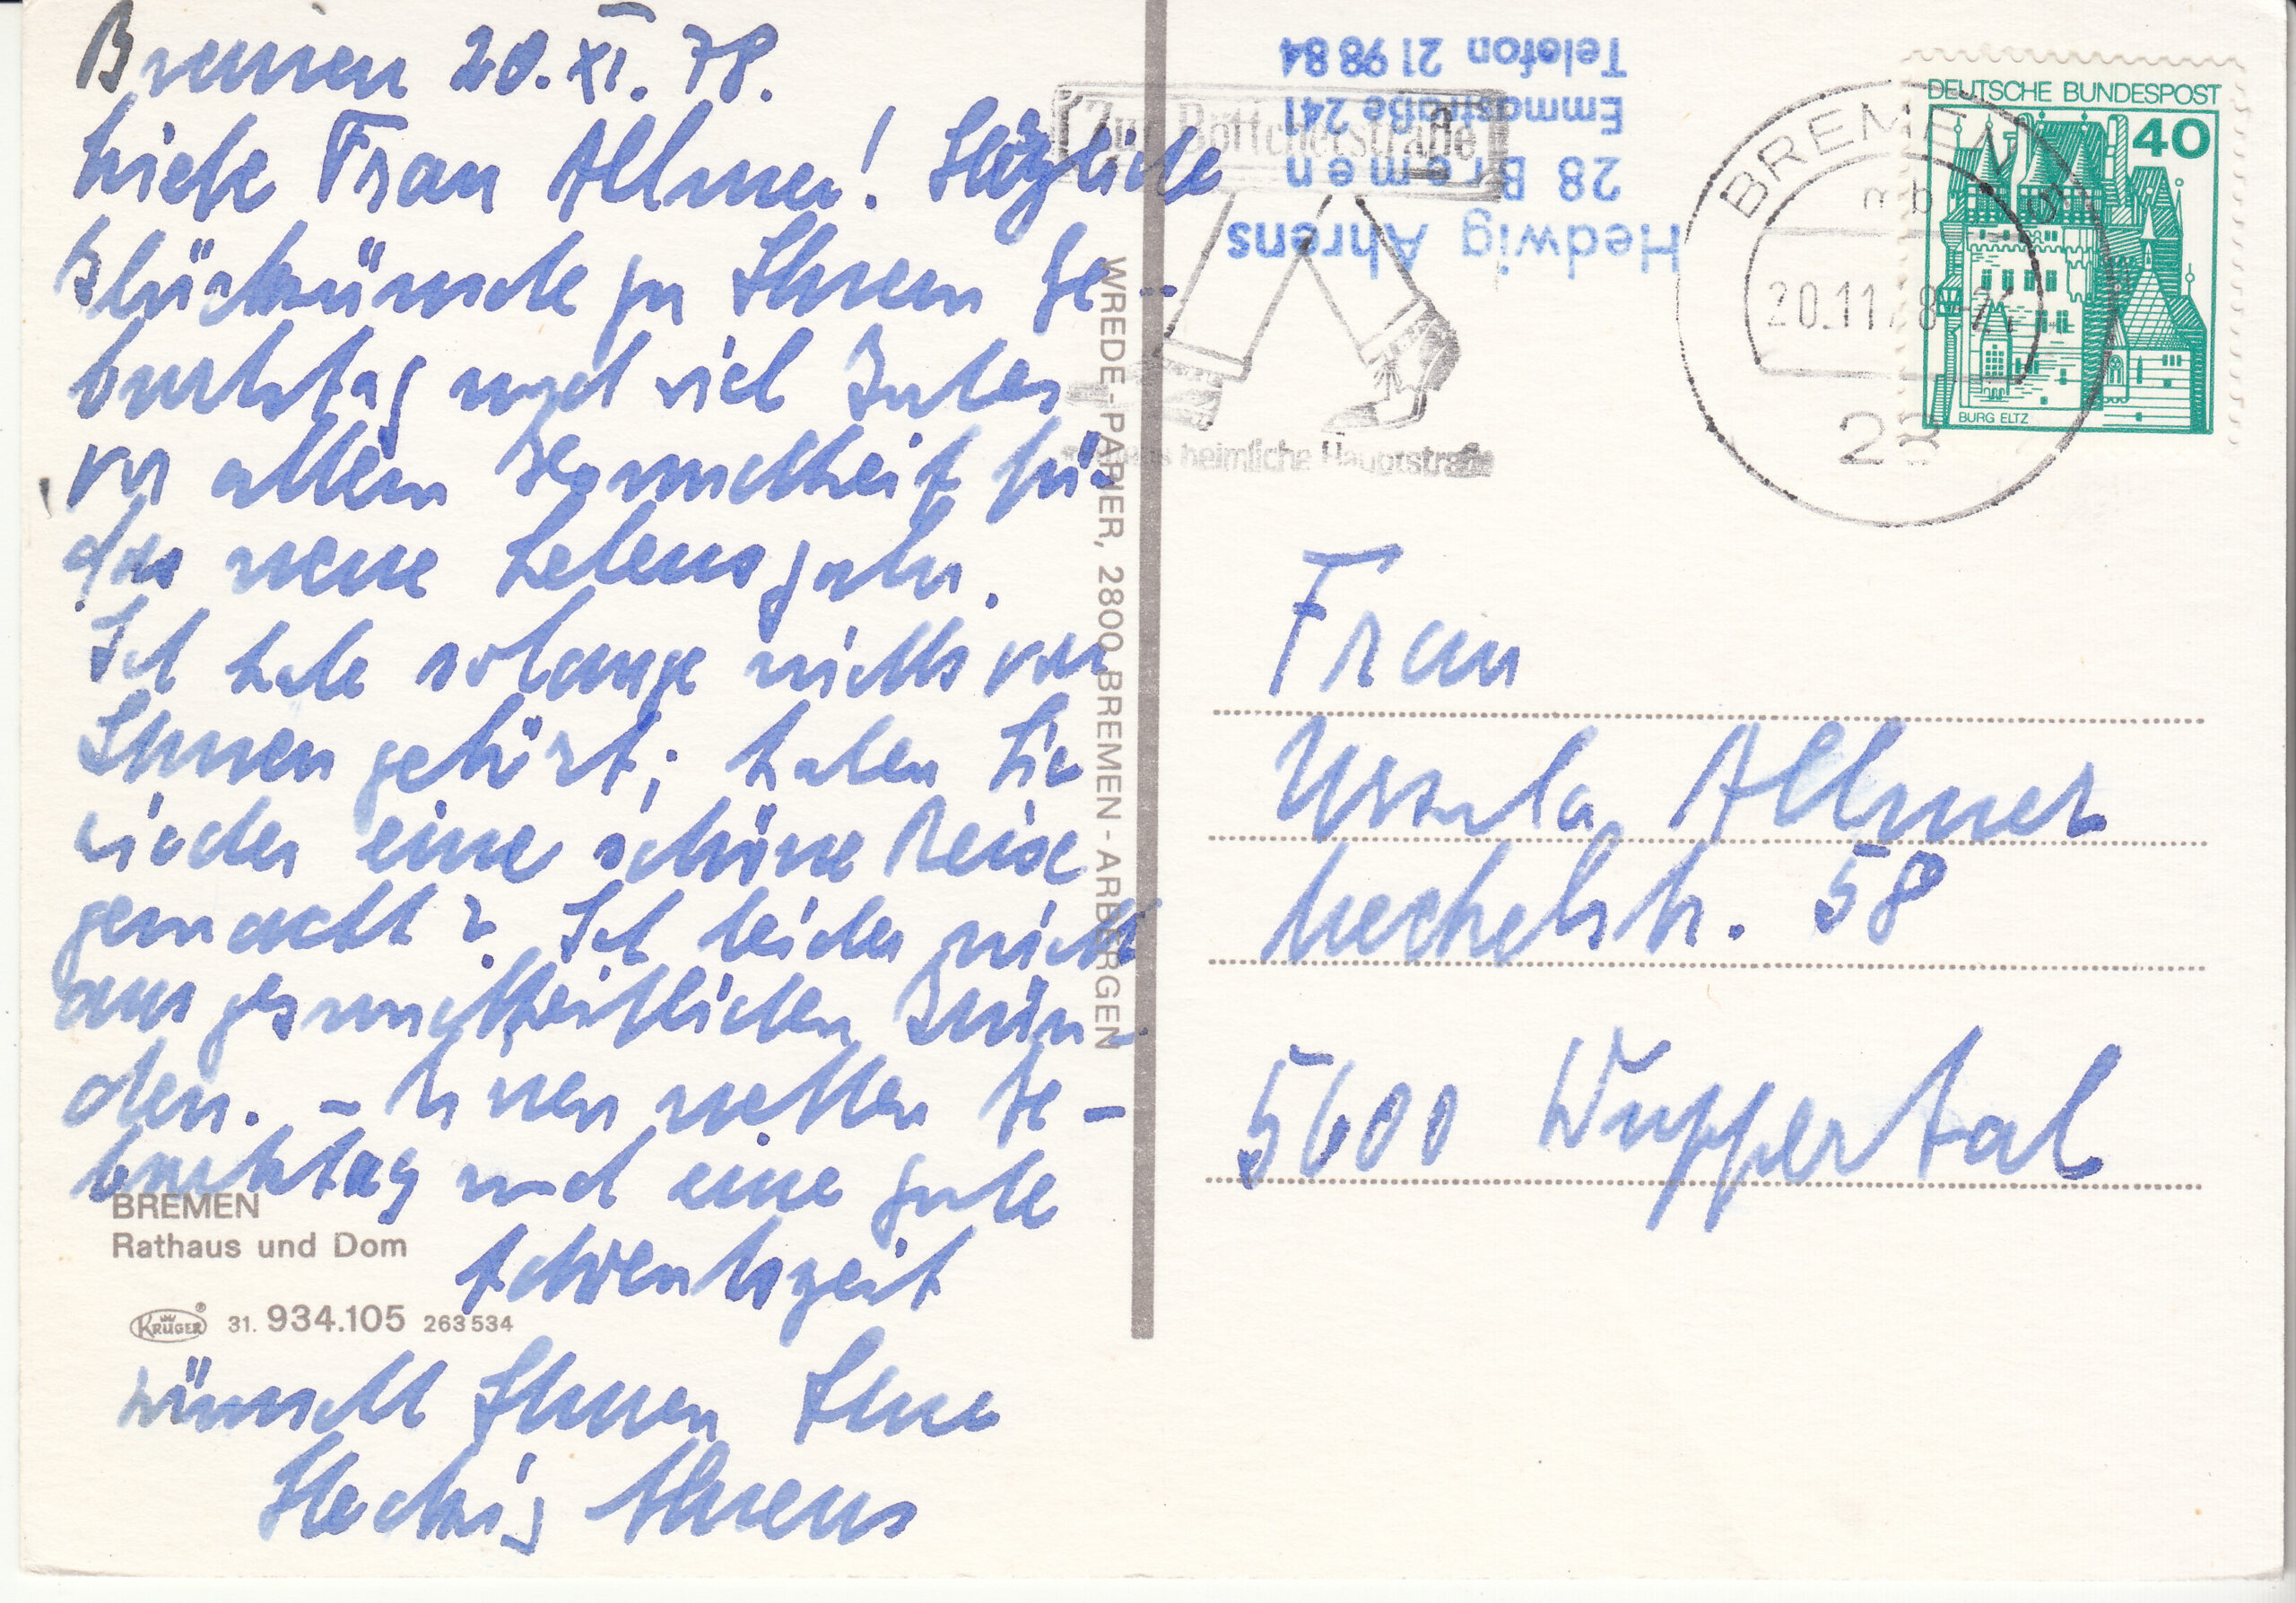 Bremen 20. XI. 78.
Liebe Frau Allmer! Herzliche
Glückwünsche zu Ihrem Ge-
burtstag und viel Gutes
vor allem Gesundheit für
das neue Lebensjahr.
Ich habe solange nichts von
Ihnen gehört; haben Sie
wieder eine schöne Reise
gemacht? Ich leider nicht
aus gesundheitlichen Grün-
den. - Einen netten Ge-
burtstag und eine gute
Adventszeit
wünscht Ihnen Ihre
Hedwig Ahrens
BREMEN
Rathaus und Dom
KRÜGER® 31. 934.105 263534
WREDE-PAPIER, 2800 BREMEN - ARBERGEN
Hedwig Ahrens
28 Bremen
Emmastraße 241
Telefon 21 98 84
Zur Böttcherstraße
heimliche Hauptstraße
BREMEN
mb
20.11.78-21
28
DEUTSCHE BUNDESPOST
40
BURG ELTZ
Frau
Ursula Allmer
58
5600 Wuppertal